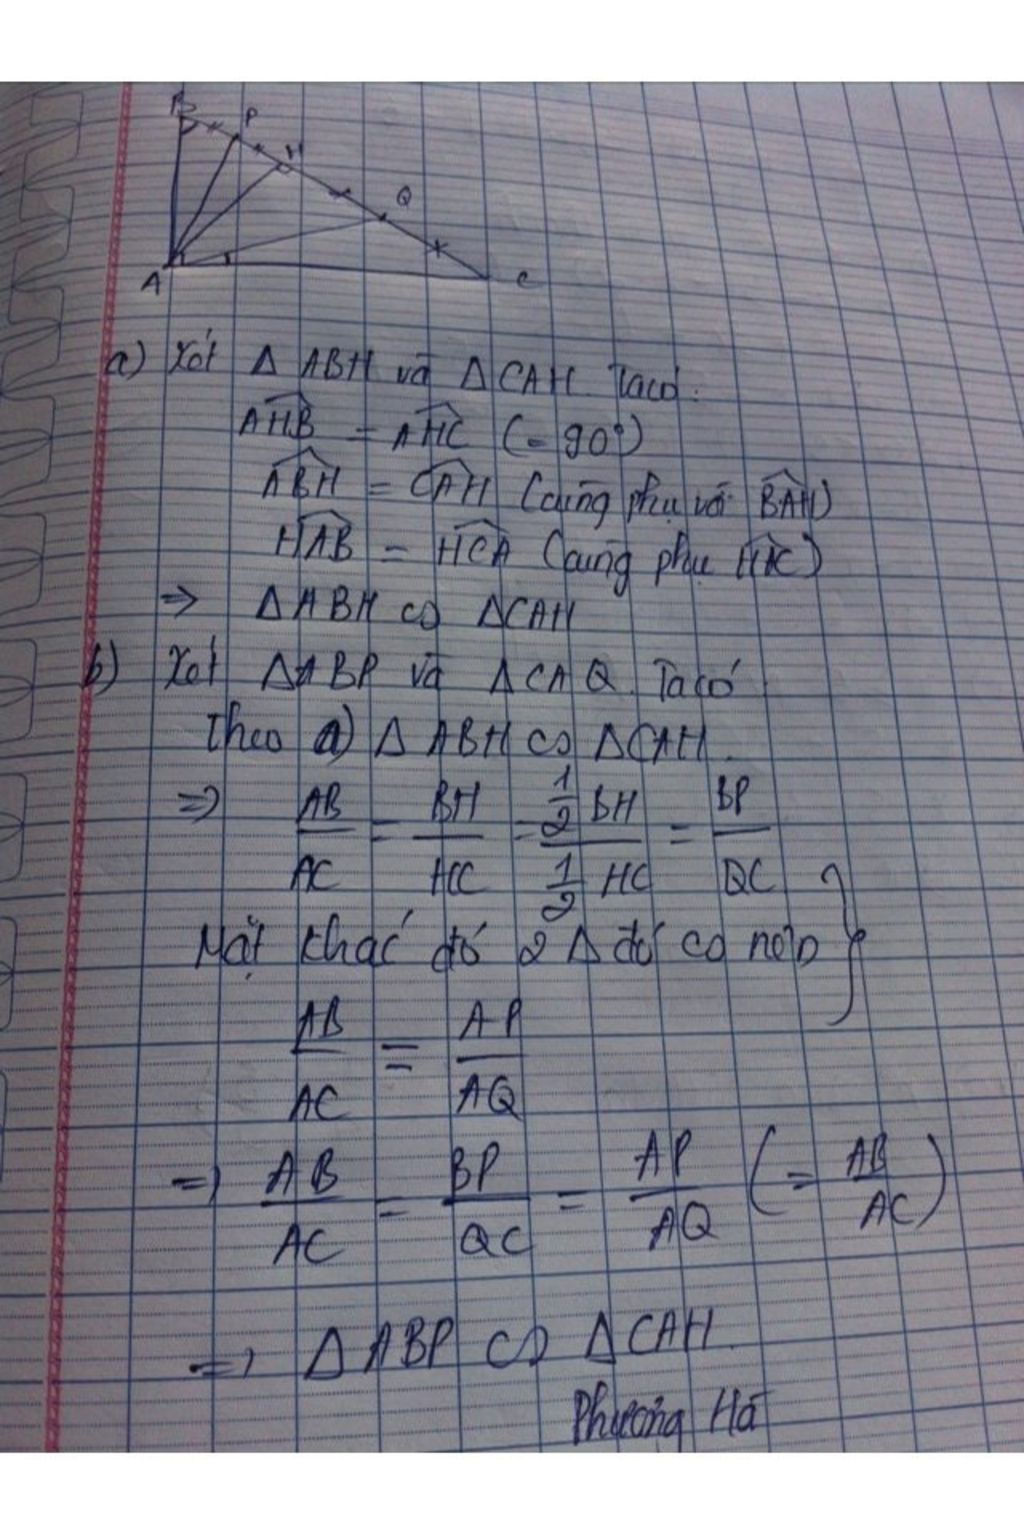 B
P
H
Q
A
C
a) Xét Δ ABH và Δ CAH Ta có:
AHB = AHC (= 90°)
ABH = CAH (cùng phụ với BAH)
HAB = HCA (cùng phụ HAC)
=> Δ ABH ∽ Δ CAH
b) Xét Δ ABP và Δ CAQ. Ta có
Theo a) Δ ABH ∽ Δ CAH.
=> AB/AC = BH/HC = 1/2 BH / 1/2 HC = BP/QC
Mặt khác đó 2 Δ đó ∽ nên }
AB/AC = AP/AQ
=> AB/AC = BP/QC = AP/AQ (= AB/AC)
=> Δ ABP ∽ Δ CAH.
Phương Hà